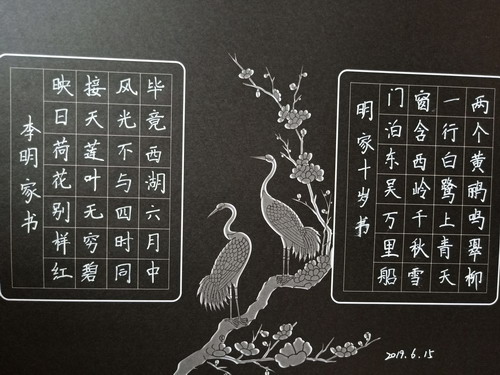 两个黄鹂鸣翠柳
一行白鹭上青天
窗含西岭千秋雪
门泊东吴万里船
明家十岁书
毕竟西湖六月中
风光不与四时同
接天莲叶无穷碧
映日荷花别样红
李明家书
2019.6.15